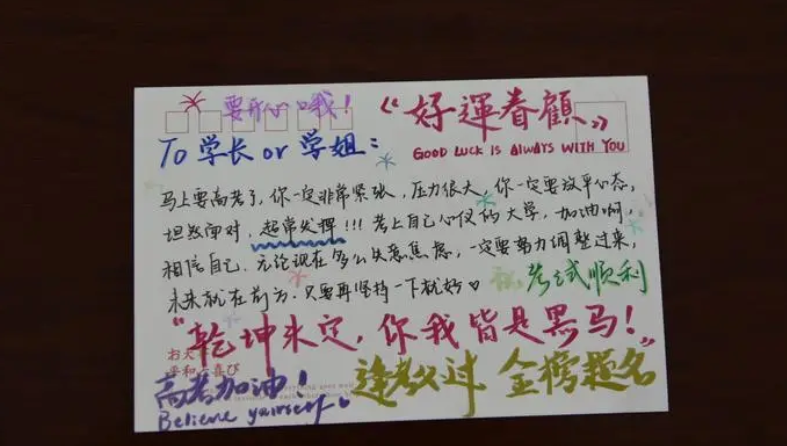 要开心哦！
《好運眷顧》
GOOD LUCK IS ALWAYS WITH YOU
To 学长 or 学姐：
马上要高考了，你一定非常紧张，压力很大，你一定要放平心态，
坦然面对，超常发挥!!! 考上自己心仪的大学，加油啊，
相信自己，无论现在多么失意焦虑，一定要努力调整过来，
未来就在前方，只要再坚持一下就好♡
祝考试顺利
“乾坤未定，你我皆是黑马！”
平和 喜び
高考加油！
逢考必过 金榜题名
Believe yourself.